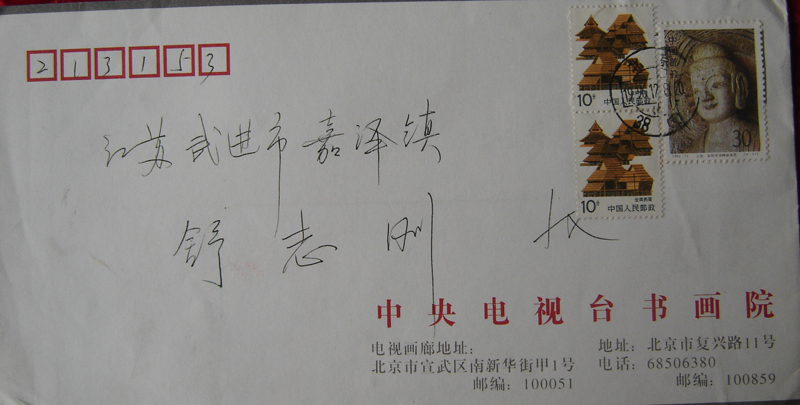 213153
10分
中国人民邮政
30
10分
中国人民邮政
1996.12.8.20
江苏武进市嘉泽镇
舒志刚
中央电视台书画院
电视画廊地址:
北京市宣武区南新华街甲1号
邮编: 100051
地址: 北京市复兴路11号
电话: 68506380
邮编: 100859